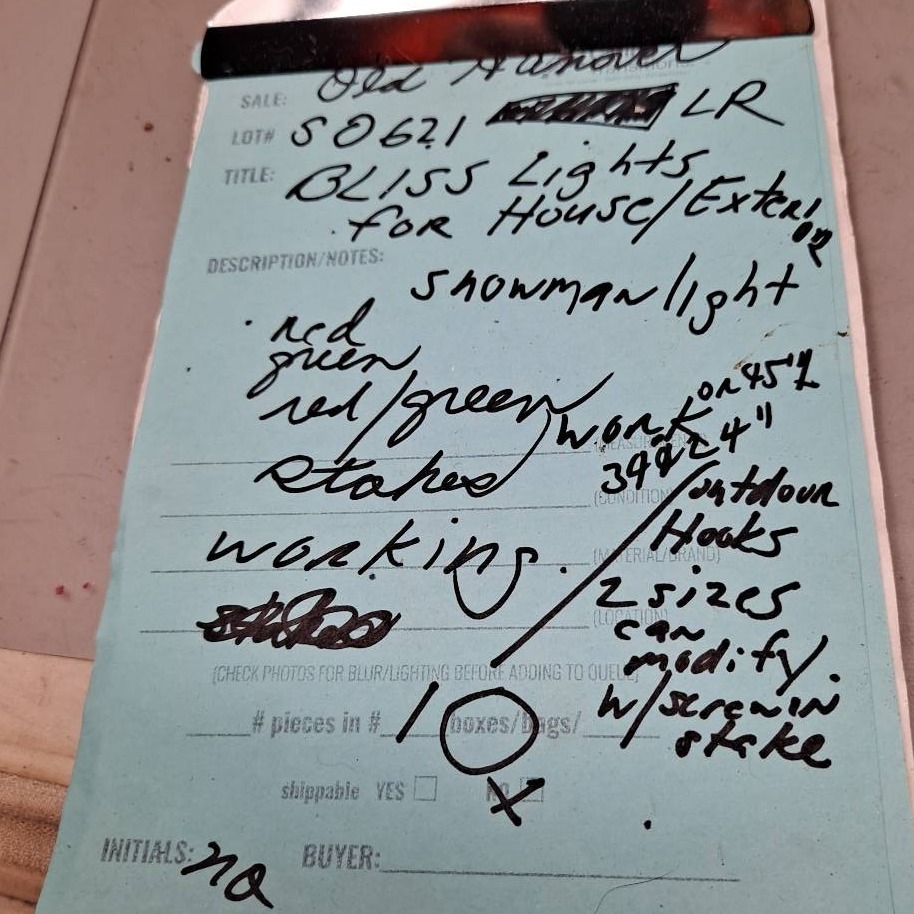 SALE: Old Hanover
LOT# S0621 LR
TITLE: BLISS Lights
for House/Exterior
DESCRIPTION/NOTES:
snowman light
red
green
red/green
work or 45"L
39 & 24"
stakes
(CONDITION)
outdoor
Hooks
working.
(MATERIAL/BRAND)
2 sizes
(LOCATION)
can
modify.
(CHECK PHOTOS FOR BLUR/LIGHTING BEFORE ADDING TO QUEUE)
w/screw in
stake
# pieces in # 1 boxes/bags/
shippable YES NO X
INITIALS: na BUYER: